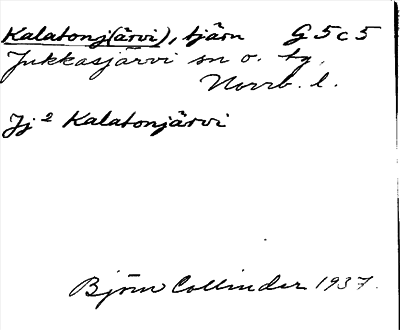 Kalatonj(ärvi), tjärn G5c5
Jukkasjärvi sn o. tg.
Norrb. l.
Jj² Kalatonjärvi
Björn Collinder 1937.